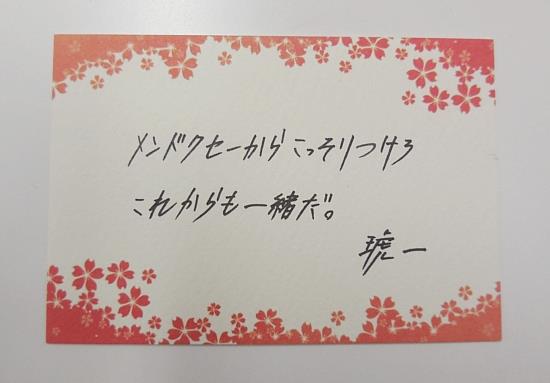 メンドクセーからこっそりつけろ
これからも一緒だ。
琥一